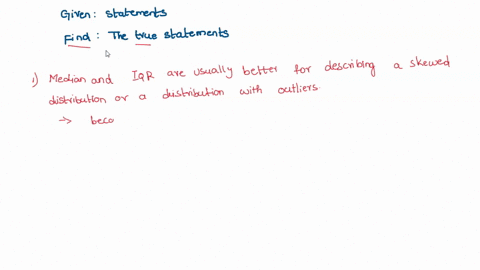 Given: statements
Find: The true statements
1) Median and IQR are usually better for describing a skewed
distribution or a dustribution with outliers.
→ beco